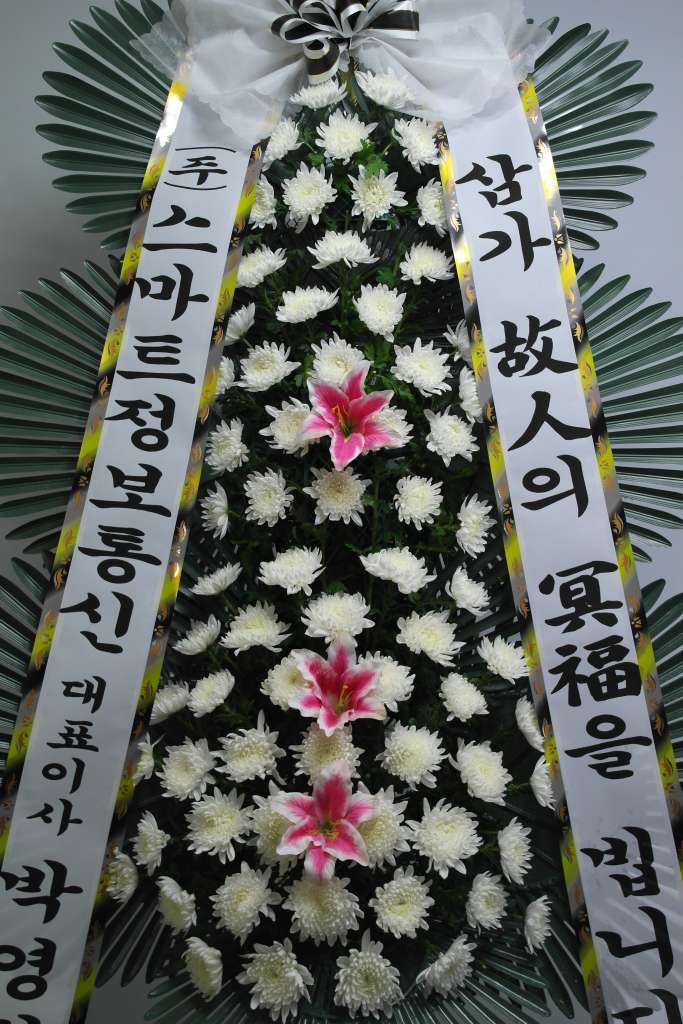 (주) 스마트정보통신 대표이사 박영
삼가 故人의 冥福을 빕니다